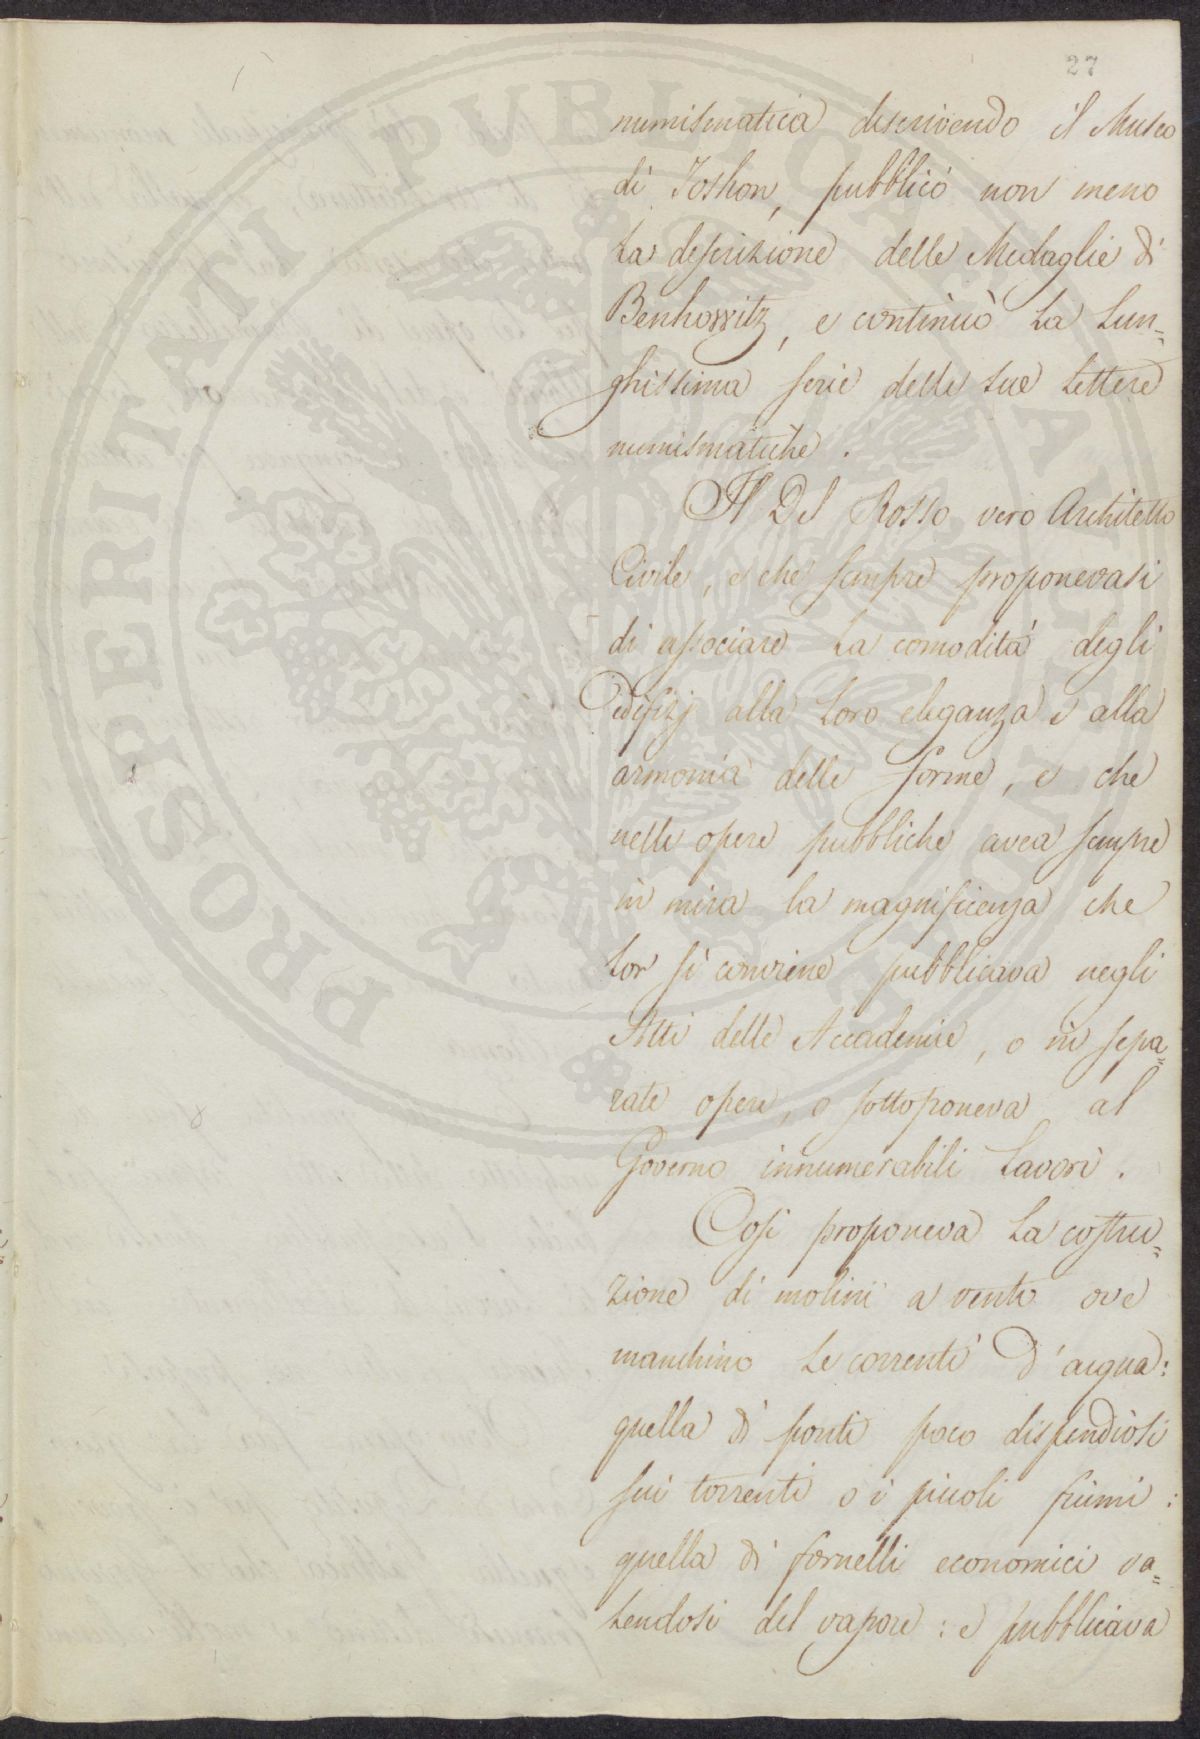 27
numismatica descrivendo il Museo
di Toshon, pubblicò non meno
la descrizione delle Medaglie di
Benkowitz, e continuò la lun=
ghissima serie delle sue lettere
numismatiche.
Il Del Rosso vero Architetto
Civile, e che sempre proponevasi
di associare la comodità degli
Edifizj alla loro eleganza e alla
armonia delle forme, e che
nelle opere pubbliche avea sempre
in mira la magnificenza che
lor si conviene pubblicava negli
Atti delle Accademie, o in sepa=
rate opere, o sottoponeva al
Governo innumerabili lavori.
Così proponeva la costru=
zione di molini a vento ove
manchino le correnti d'acqua:
quella di ponti poco dispendiosi
sui torrenti o i piccoli fiumi:
quella di fornelli economici va=
lendosi del vapore: e pubblicava
PROSPERITATI PUBLICAE AUGENDAE